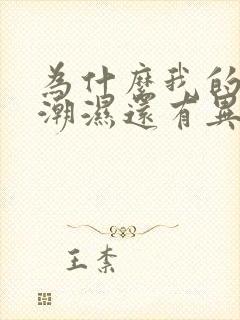 為什麼我的
潮濕還有異
王柰